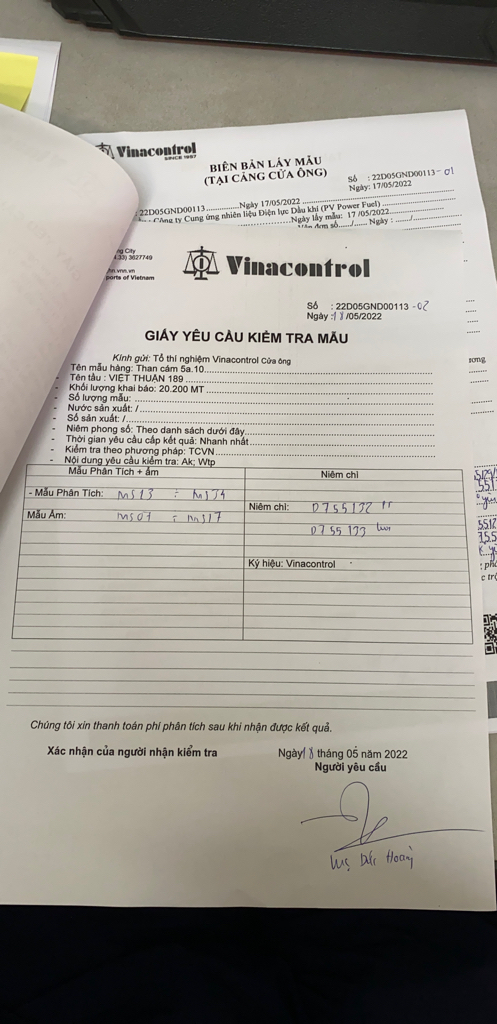 Vinacontrol
SINCE 1957
BIÊN BẢN LẤY MẪU
(TẠI CẢNG CỬA ÔNG)
Số : 22D05GND00113-01
Ngày: 17/05/2022
: 22D05GND00113...............Ngày 17/05/2022
Công ty Cung ứng nhiên liệu Điện lực Dầu khí (PV Power Fuel)
Ngày lấy mẫu: 17 /05/2022
Vận đơn số..../..... Ngày : ....../
ng City
.33) 3627749
hn.vnn.vn
ports of Vietnam
Vinacontrol
Số : 22D05GND00113 -02
Ngày :18/05/2022
GIẤY YÊU CẦU KIỂM TRA MẪU
Kính gửi: Tổ thí nghiệm Vinacontrol Cửa ông
- Tên mẫu hàng: Than cám 5a.10
- Tên tầu : VIỆT THUẬN 189
- Khối lượng khai báo: 20.200 MT
- Số lượng mẫu:
- Nước sản xuất: /
- Số sản xuất: /
- Niêm phong số: Theo danh sách dưới đây
- Thời gian yêu cầu cấp kết quả: Nhanh nhất
- Kiểm tra theo phương pháp: TCVN
- Nội dung yêu cầu kiểm tra: Ak; Wtp
Mẫu Phân Tích + ẩm Niêm chì
- Mẫu Phân Tích: MS13 ÷ MS34 Niêm chì: 0755132 PT
Mẫu Ẩm: MS07 ÷ MS17 0755133 lưu
Ký hiệu: Vinacontrol
Chúng tôi xin thanh toán phí phân tích sau khi nhận được kết quả.
Xác nhận của người nhận kiểm tra Ngày18 tháng 05 năm 2022
Người yêu cầu
Đức Hoàng